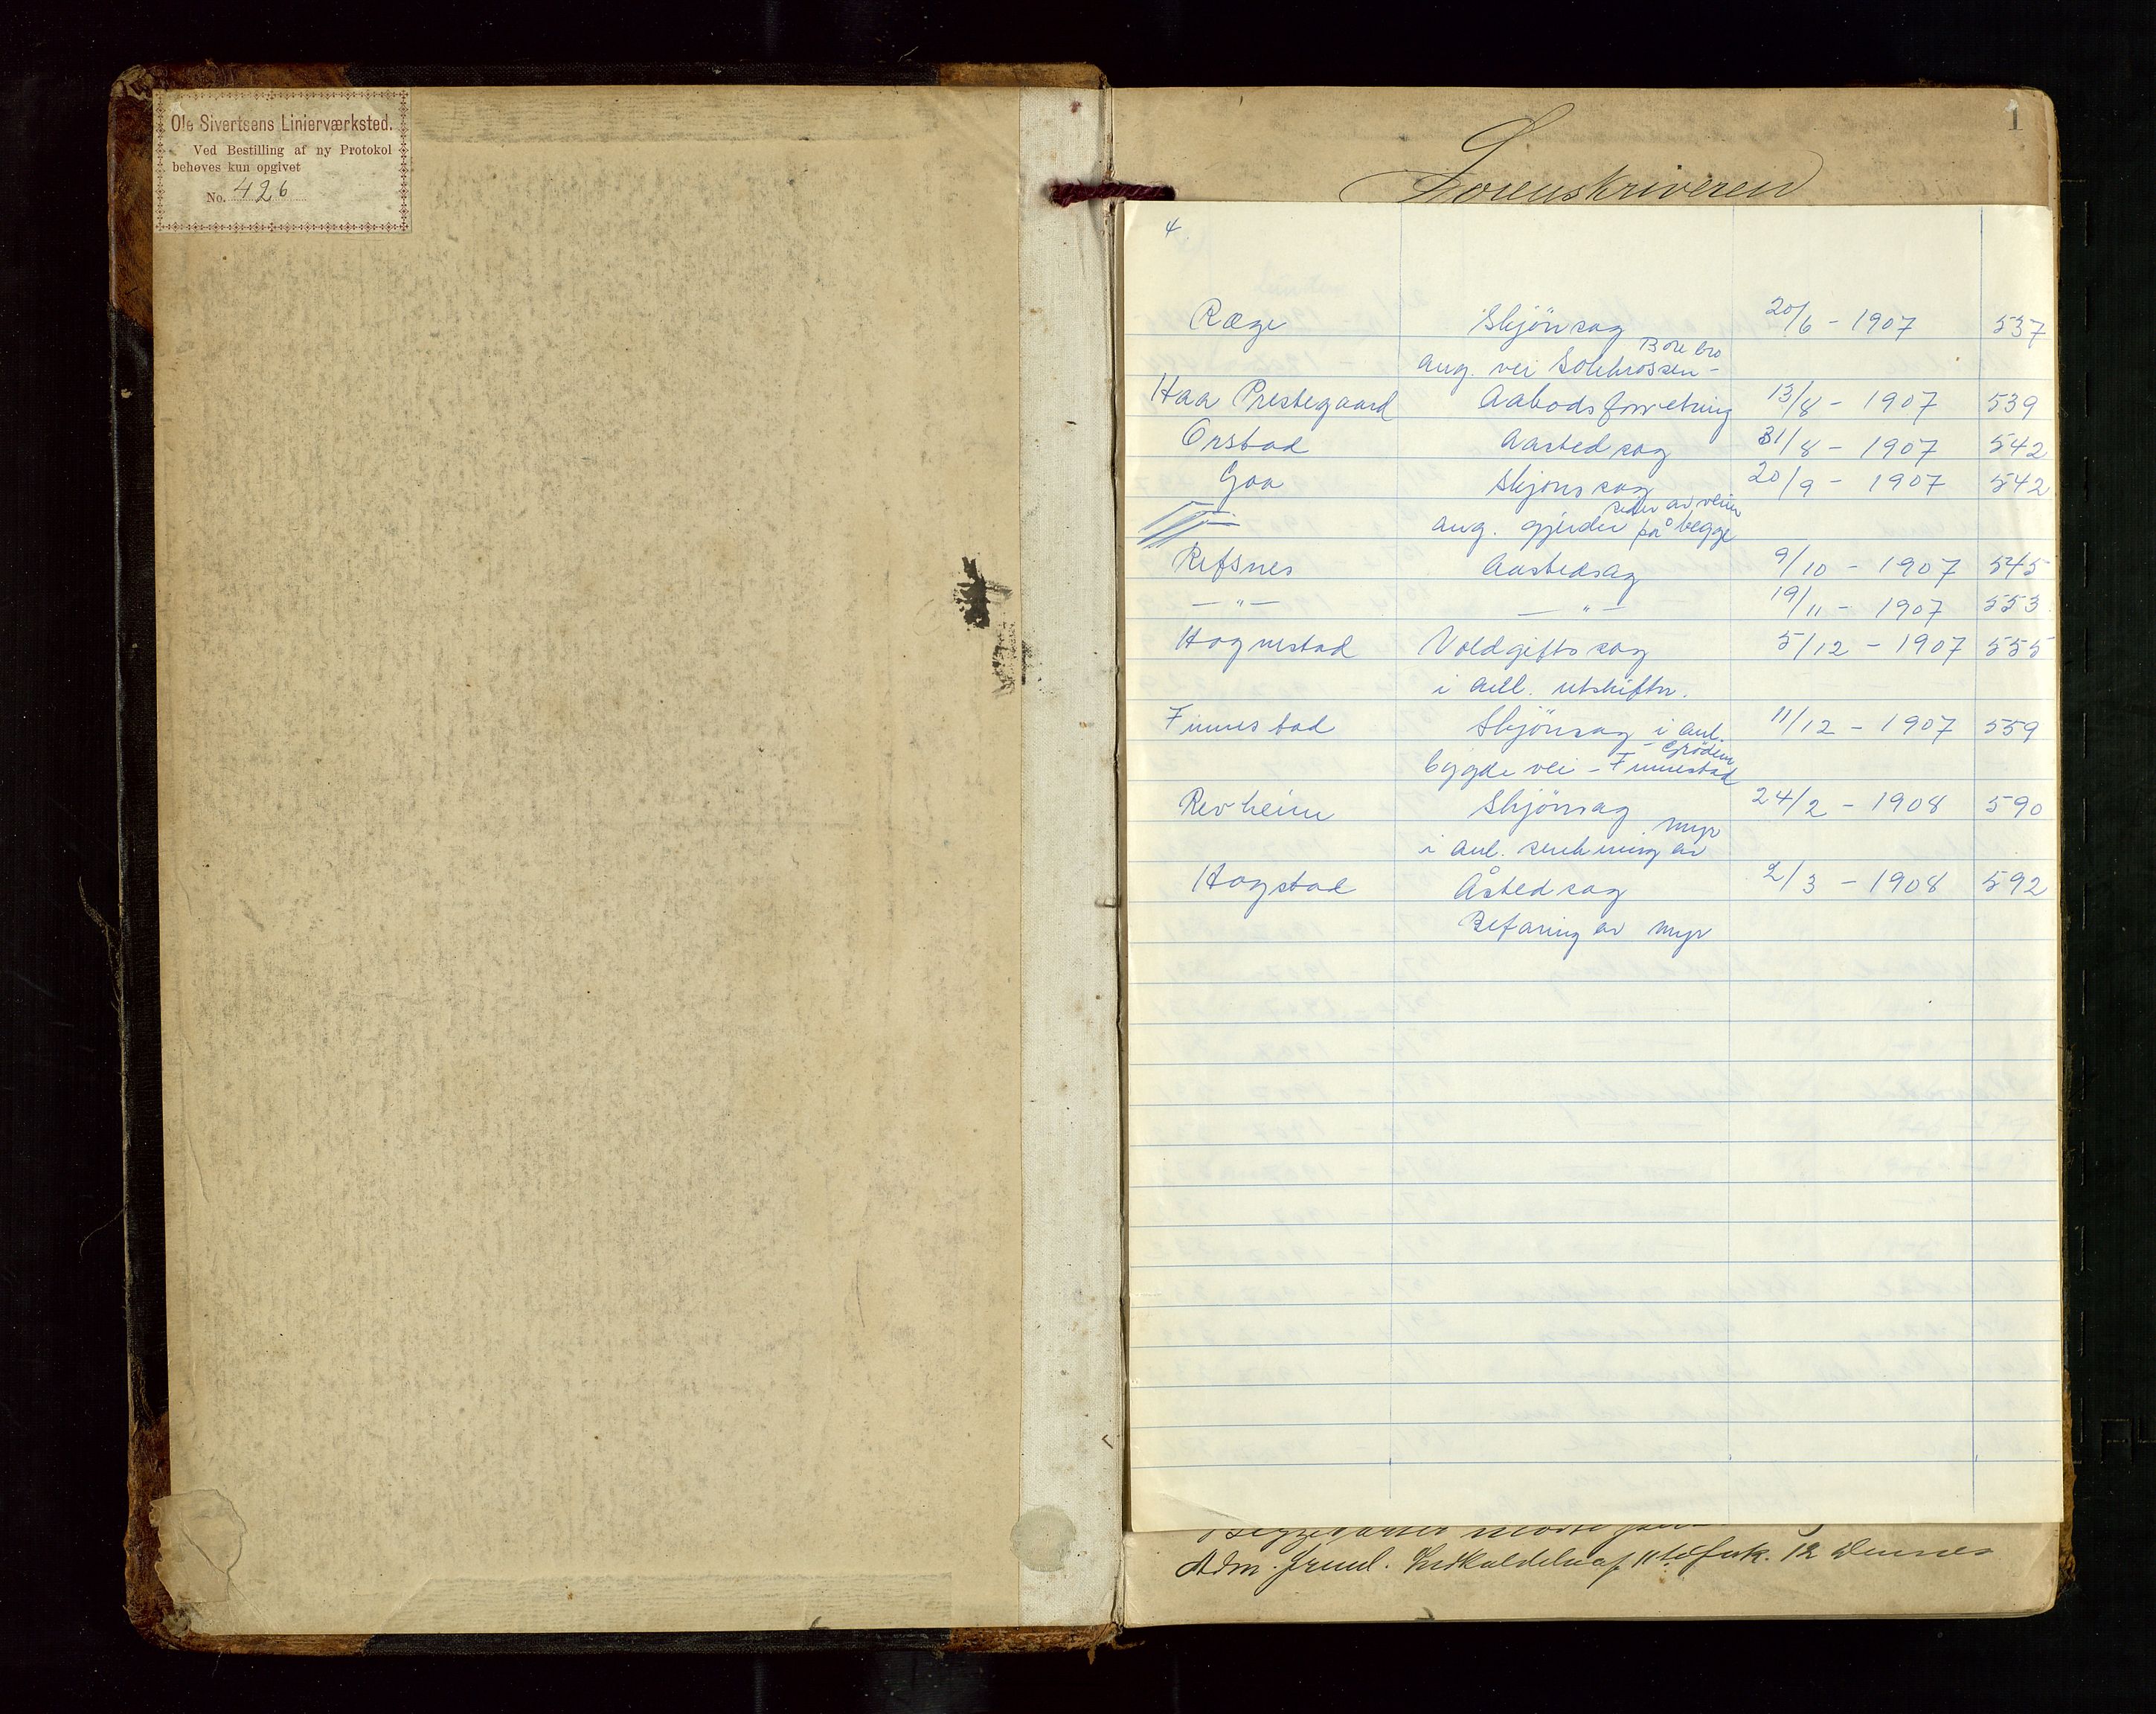 Ole Sivertsens Linierværksted.
Ved Bestilling af ny Protokol
behøves kun opgivet
No. 426
1
Sorenskriveren
4
Ræge Skjönsag 20/6 - 1907 537
ang. vei Solekrossen - Bore bro
Haa Prestegaard Aabodsforretning 13/8 - 1907 539
Orstad Aasted sag 31/8 - 1907 542
Goa Skjönssag 20/9 - 1907 542
-"- ang. gjerder på begge sider av veien
Refsnes Aastedsag 9/10 - 1907 545
-"- -"- 19/11 - 1907 553
Hognestad Voldgiftssag 5/12 - 1907 555
i anl. utskiftn.
Finnestad Skjönsag i anl. 11/12 - 1907 559
bygde vei - Finnestad - Gröden
Revheim Skjönsag 24/2 - 1908 590
i anl. senkning av myr
Hogstad Åstedsag 2/3 - 1908 592
Befaring av myr
Adm. freml. 12